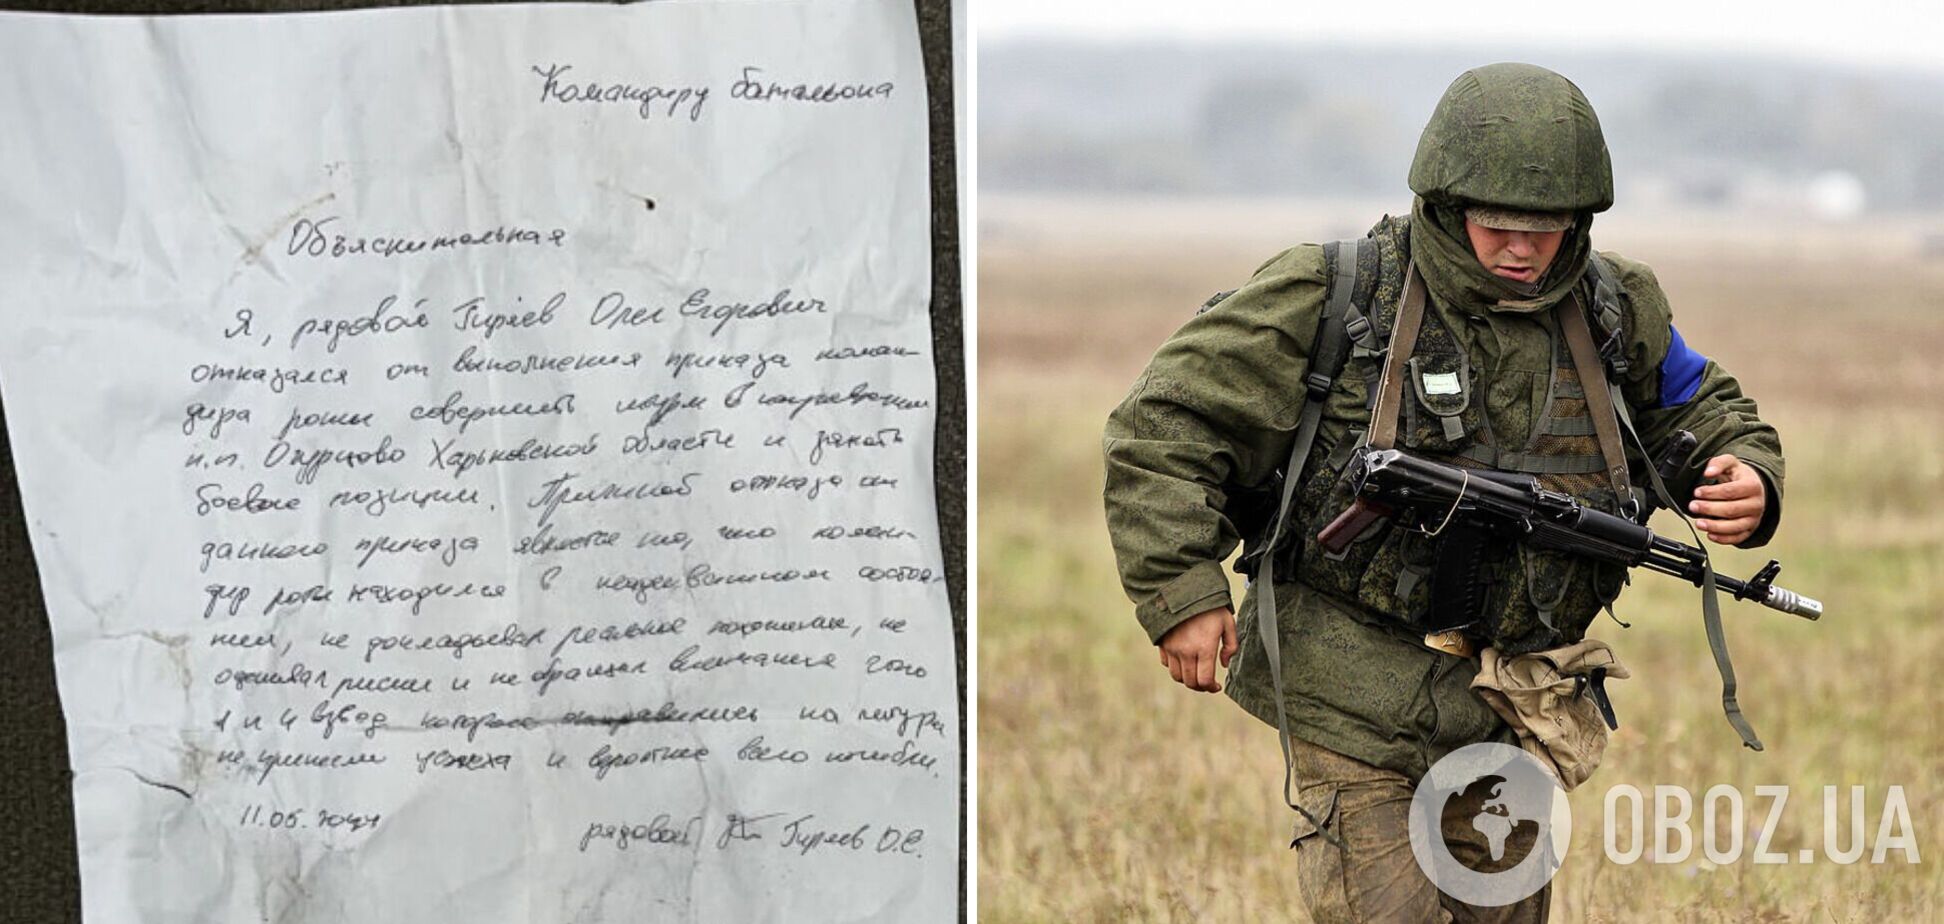 Командиру батальона
Объяснительная
Я, рядовой Гиряев Олег Егорович
отказался от выполнения приказа коман-
дира роты совершить штурм в направлении
н.п. Огурцово Харьковской области и занять
боевые позиции. Причиной отказа от
данного приказа является то, что коман-
дир роты находился в неадекватном состоя-
нии, не докладывал реальное положение, не
оценивал риски и не обращал внимания что
1 и 4 взвод которые отправились на штурм
не принесли успеха и вероятнее всего погибли.
11.05.2024
рядовой Гиряев О.Е.
OBOZ.UA